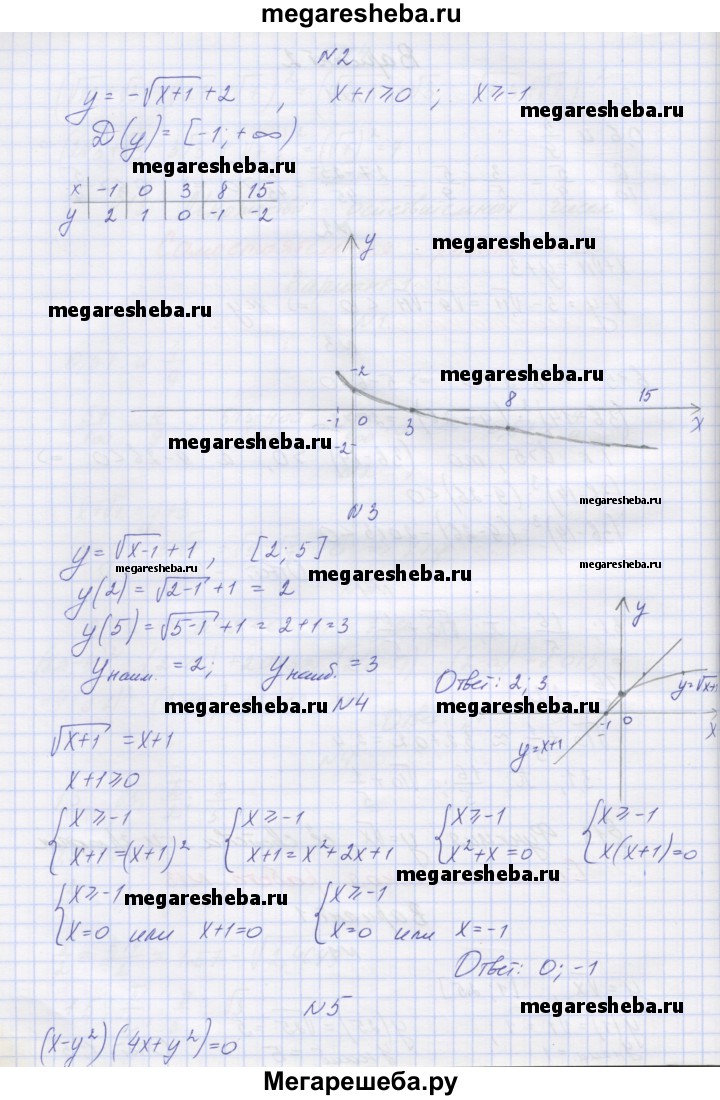 megaresheba.ru
N2
y = -√(x+1) + 2 , x+1⩾0 ; x⩾-1
megaresheba.ru
D(y) = [-1; +∞)
megaresheba.ru
x | -1 | 0 | 3 | 8 | 15
y | 2 | 1 | 0 | -1 | -2
y
megaresheba.ru
megaresheba.ru
2
megaresheba.ru
8 15
-1 0 3 x
megaresheba.ru
-2
megaresheba.ru
N3
y = √(x-1) + 1 , [2; 5]
megaresheba.ru
megaresheba.ru
y(2) = √(2-1) + 1 = 2
y(5) = √(5-1) + 1 = 2+1=3
y
yнаим. = 2; yнаиб. = 3
Ответ: 2; 3
y=√x+1
megaresheba.ru
N4
megaresheba.ru
-1 0 x
√(x+1) = x+1
y=x+1
x+1⩾0
{x⩾-1 {x⩾-1 {x⩾-1 {x⩾-1
x+1=(x+1)² x+1=x²+2x+1 x²+x=0 x(x+1)=0
megaresheba.ru
{x⩾-1 {x⩾-1
megaresheba.ru
x=0 или x+1=0 x=0 или x=-1
Ответ: 0; -1
N5
megaresheba.ru
(x-y²)(4x+y²)=0
Мегарешеба.ру